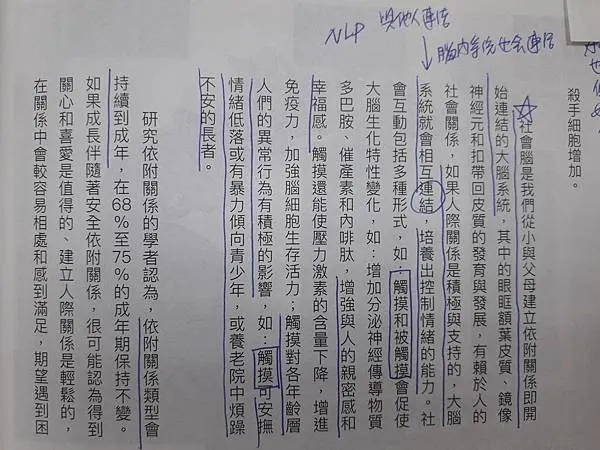 NLP 與他人連結
↓ 腦內系統也會連結
殺手細胞增加。
社會腦是我們從小與父母建立依附關係即開
始連結的大腦系統，其中的眼眶額葉皮質、鏡像
神經元和扣帶回皮質的發育與發展，有賴於人的
社會關係，如果人際關係是積極與支持的，大腦
系統就會相互連結，培養出控制情緒的能力。社
會互動包括多種形式，如：觸摸和被觸摸會促使
大腦生化特性變化，如：增加分泌神經傳導物質
多巴胺、催產素和內啡肽，增強與人的親密感和
幸福感。觸摸還能使壓力激素的含量下降，增進
免疫力，加強腦細胞生存活力；觸摸對各年齡層
人們的異常行為有積極的影響，如：觸摸可安撫
情緒低落或有暴力傾向青少年，或養老院中煩躁
不安的長者。
研究依附關係的學者認為，依附關係類型會
持續到成年，在68%至75%的成年期保持不變。
如果成長伴隨著安全依附關係，很可能認為得到
關心和喜愛是值得的、建立人際關係是輕鬆的，
在關係中會較容易相處和感到滿足，期望遇到困